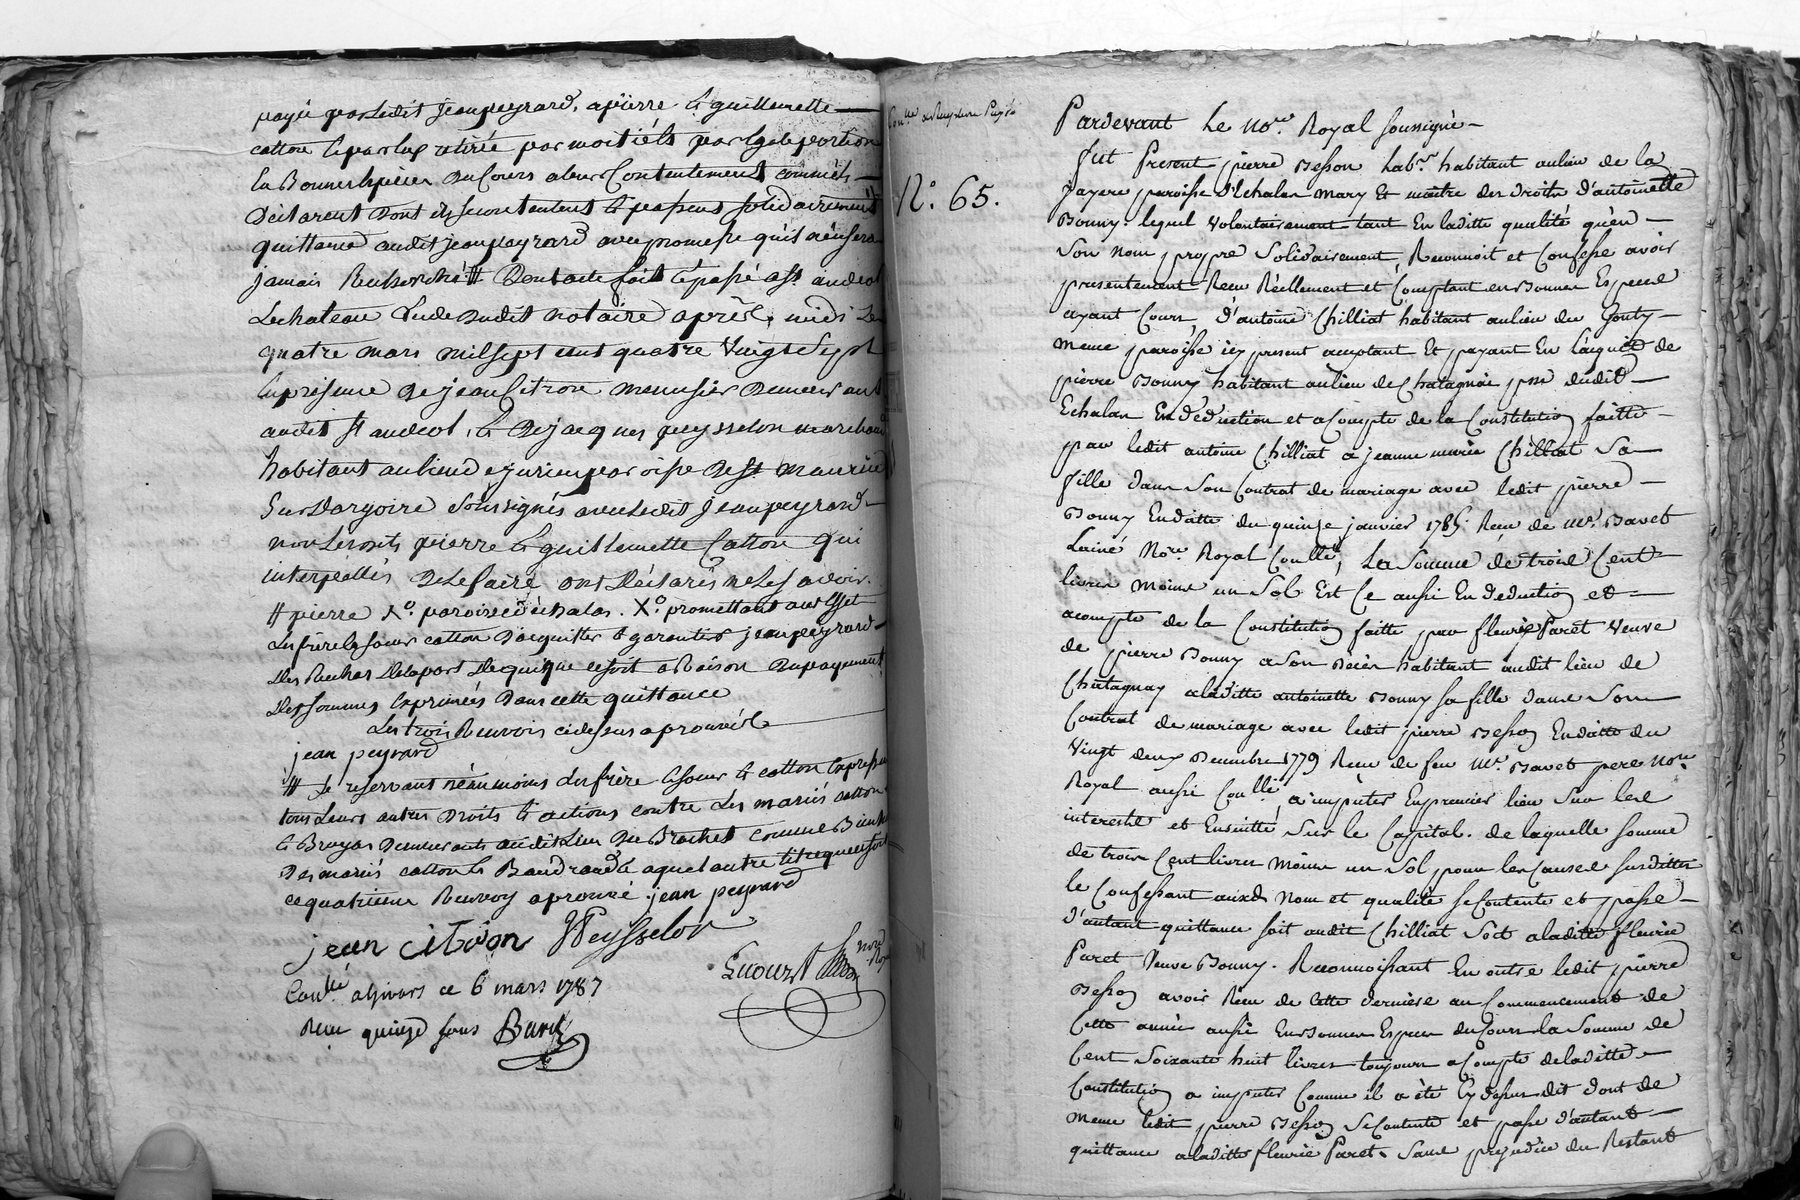 payée par ledit jean peyrard, a pierre & guillemette
catton & par eux retirée par moitiés par egale portion
En Bonnes Espèces du Cours a leur Contentement comme ils
Déclarent dont ils se contentent & passent solidairement
quittance audit jean peyrard avec promesse qu'il n'en sera
jamais Recherché # Dont acte fait & passé a st andeol
Le chateau Etude dudit notaire après midi Le
quatre mars mil sept cent quatre Vingt Sept
En presence de jean Citron menusier Demeurant
audit st andeol, & de jacques peysselon marchand
habitant au lieu de jurieu paroisse de st maurice
Sur Dargoire Soussignés avec ledit jean peyrard
non lesdits pierre & guillemette Catton qui
interpellés de le faire ont Déclarés ne le sçavoir.
# pierre Xo. paroisse d'échalas. Xo. promettant a cet effet
Les frère & soeur catton d'acquitter & garantir jean peyrard
des Recherches de la part de qui que ce soit a Raison du payement
des sommes Exprimées dans cette quittance
Les trois Renvois cidessus aprouvés
jean peyrard
# Se reservant néanmoins les frère & soeur catton Expressement
tous leurs autres Droits & actions contre Les mariés catton
& Broyas Demeurants audit Lieu du Brochet comme Bien
des mariés catton & Baudrand a quel autre titre que ce soit
ce quatrieme Renvoy aprouvé. jean peyrard
jean citron JPeysselon
Lucourt nore Royal
Conllé a Givors ce 6 mars 1787
Reçu quinze sous
Conlle
No. 65.
Pardevant Le Nore. Royal soussigné
fut Present pierre Besson labr. habitant au lieu de la
jayere paroisse d'Echalas Mary Et maître des droits d'antoinette
Bonny. lequel Volontairement tant En laditte qualité qu'en
Son Nom propre Solidairement, Reconnoit et Confesse avoir
presentement Reçu Réellement et Comptant en Bonnes Especes
ayant Cours, d'antoine Chilliat habitant au lieu du Gonty
meme paroisse icy present acceptant Et payant En l'acquit de
pierre Bonny habitant au lieu de Chatagnai psse dudit
Echalas En déduction et a Compte de la Constitution faitte
par ledit antoine Chilliat a jeanne marie Chilliat Sa
fille dans Son Contrat de mariage avec ledit pierre
Bonny En datte du quinze janvier 1785. Reçu de Me. Bavet
Lainé Nore Royal Conllé, La Somme de trois Cent
livres Moins un Sol Est Ce aussi En deduction et
acompte de la Constitution faitte par fleurie Paret Veuve
de pierre Bonny a Son Décès habitant audit lieu de
Chatagnay a laditte antoinette Bonny sa fille dans Son
Contrat de mariage avec ledit pierre Besson En datte du
Vingt deux Decembre 1779 Reçu de feu Me. Bavet pere nore
Royal aussi Conllé, a imputer En premier lieu Sur les
interests et Ensuitte Sur le Capital. de laquelle somme
de trois Cent livres moins un Sol, pour les Causes susdittes
le Confessant auxds Nom et qualité se Contente et passe
d'autant quittance soit audit Chilliat Soit a laditte fleurie
Paret Veuve Bonny. Reconnoissant En outre ledit pierre
Besson avoir Reçu de Cette derniere au Commencement de
Cette année aussi En Bonnes Especes du Cours la Somme de
Cent Soixante huit livres toujours a Compte de laditte
Constitution a imputer Comme il a été Cy dessus dit dont de
meme ledit pierre Besson Se Contente et passe d'autant
quittance a laditte fleurie Paret. Sans prejudice du Restant